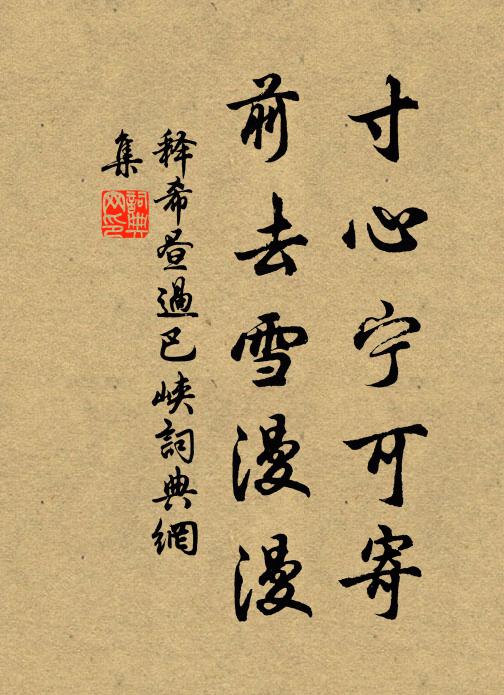 寸心宁可寄
前去雪漫漫
释希昼過巴峡詞典網
集
詞典网印